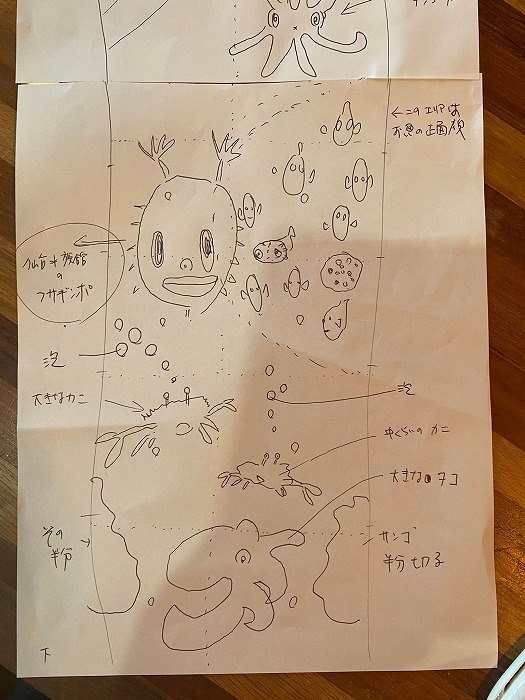 ←このエリアは
お魚の正面顔
仙台水族館
の
フサギンポ
泡
大きなカニ
泡
中くらいのカニ
大きなタコ
その
半分
サンゴ
半分切る
下